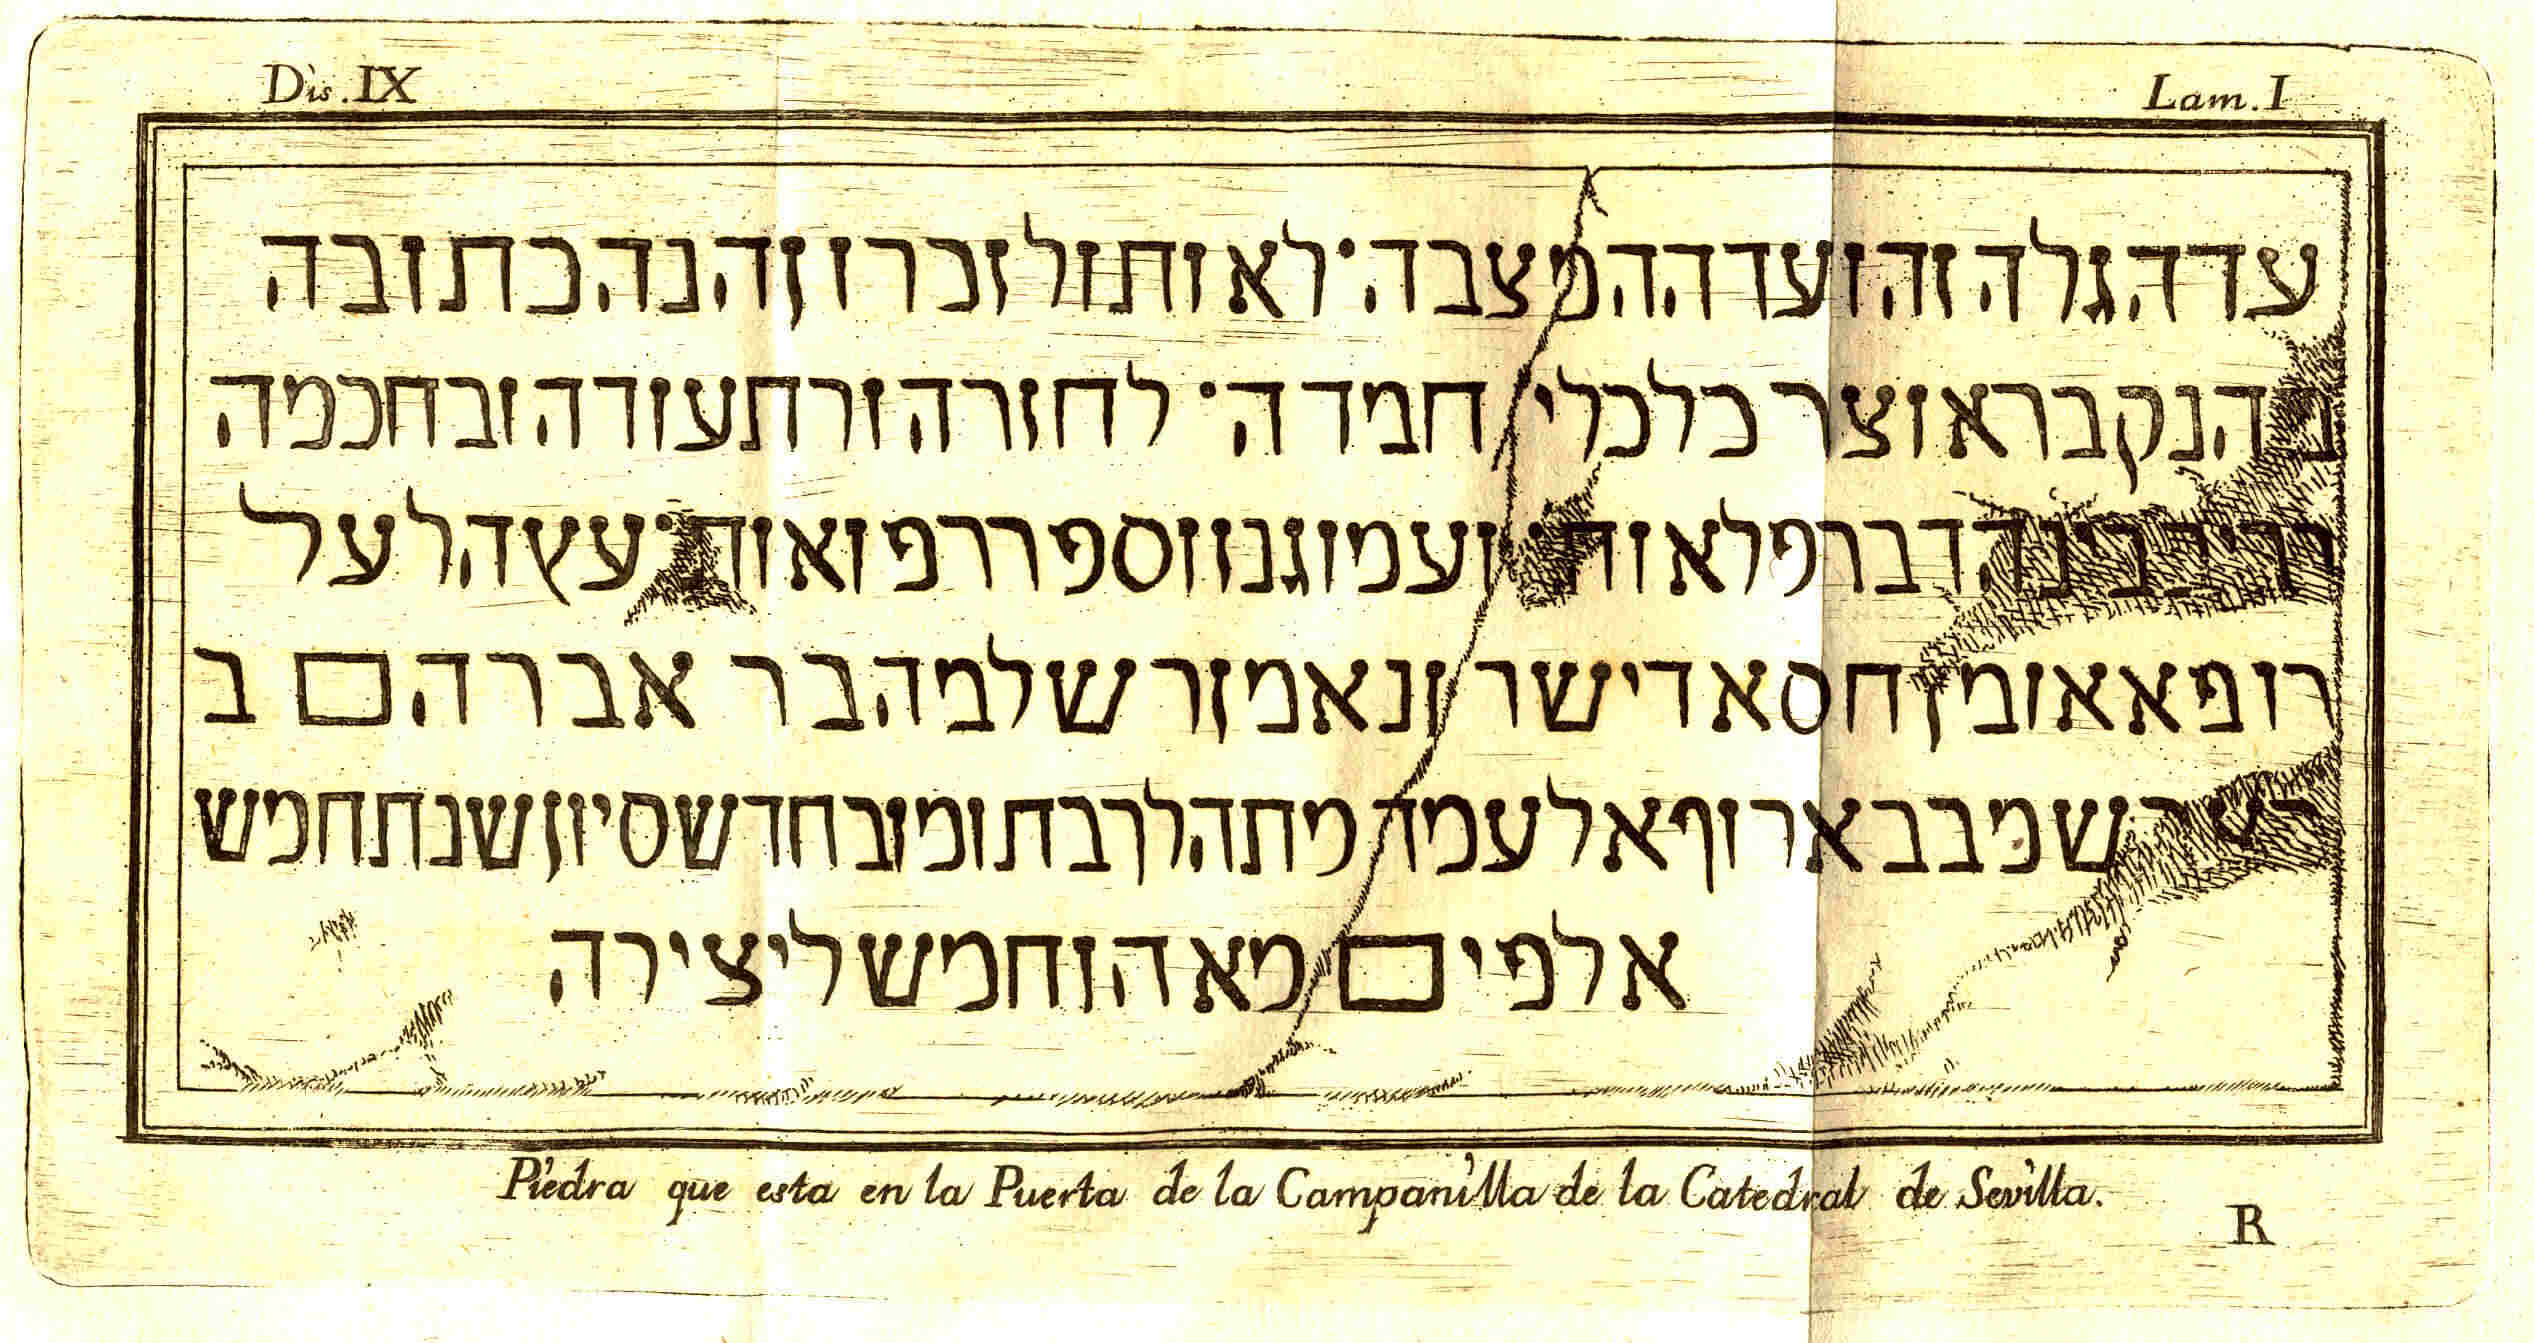 Dis. IX
Lam. I
עד הגל הזה ועד ההמצבה · לאות ולזכרון הנה כתובה
בה נקבר אוצר כל כלי חמדה · לחורה ורתעודה ובחכמה
דבר פלאות ועמו גנוז וספר רפואות · עצה לעל
רופא אומן חסאד ישר ונאמזר שלמה בר אברהם ב
שמבבארוף אל עמד מתהלך בתומו בחדש סיון שנת חמש
אלפים מאה וחמש ליצירה
Piedra que esta en la Puerta de la Campanilla de la Catedral de Sevilla.
R